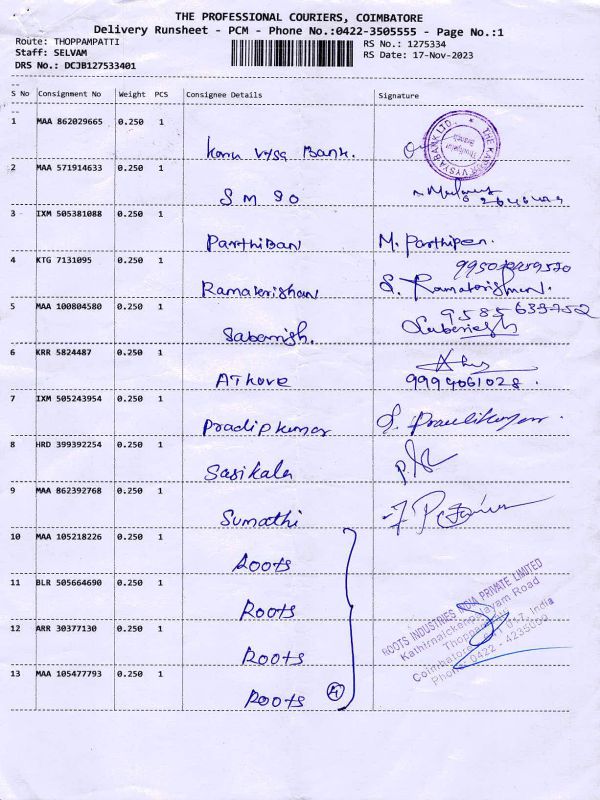 THE PROFESSIONAL COURIERS, COIMBATORE
Delivery Runsheet - PCM - Phone No.:0422-3505555 - Page No.:1
Route: THOPPAMPATTI RS No.: 1275334
Staff: SELVAM RS Date: 17-Nov-2023
DRS No.: DCJB127533401
--
S No Consignment No Weight PCS Consignee Details Signature
--
1 MAA 862029665 0.250 1
Karur Vysa Bank.
THE KARUR VYSYA BANK LTD.
Thudiyalur
Branch
2 MAA 571914633 0.250 1
S M 80
3 IXM 505381088 0.250 1
Parthiban M. Parthipan.
4 KTG 7131095 0.250 1
Ramakrishan S. Ramakrishnan.
5 MAA 100804580 0.250 1
9585633752
Sabarish.
6 KRR 5824487 0.250 1
Athore 9994061028.
7 IXM 505243954 0.250 1
Pradipkumar
8 HRD 399392254 0.250 1
Sasikala
9 MAA 862392768 0.250 1
Sumathi
10 MAA 105218226 0.250 1
Roots
11 BLR 505664690 0.250 1
Roots
12 ARR 30377130 0.250 1
Roots
13 MAA 105477793 0.250 1
Roots 4
ROOTS INDUSTRIES INDIA PRIVATE LIMITED
Kathirnaickenpalayam Road
Thoppampatti
Coimbatore - 641 017, India
Phone: 0422 - 4235000